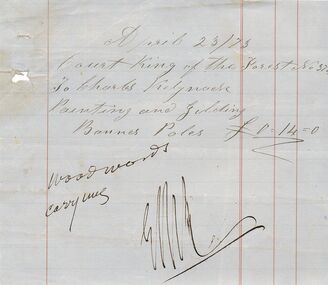 April 23/73
Court King of the Forest No
To Charles
Painting and Gilding
Banner Poles £0-14=0
Woodwards